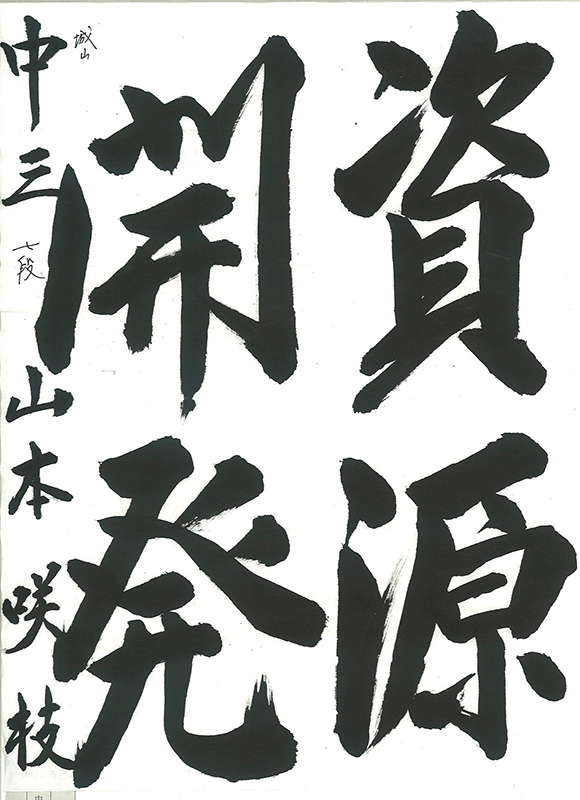 資源
開発
城山
中三 七段 山本咲枝